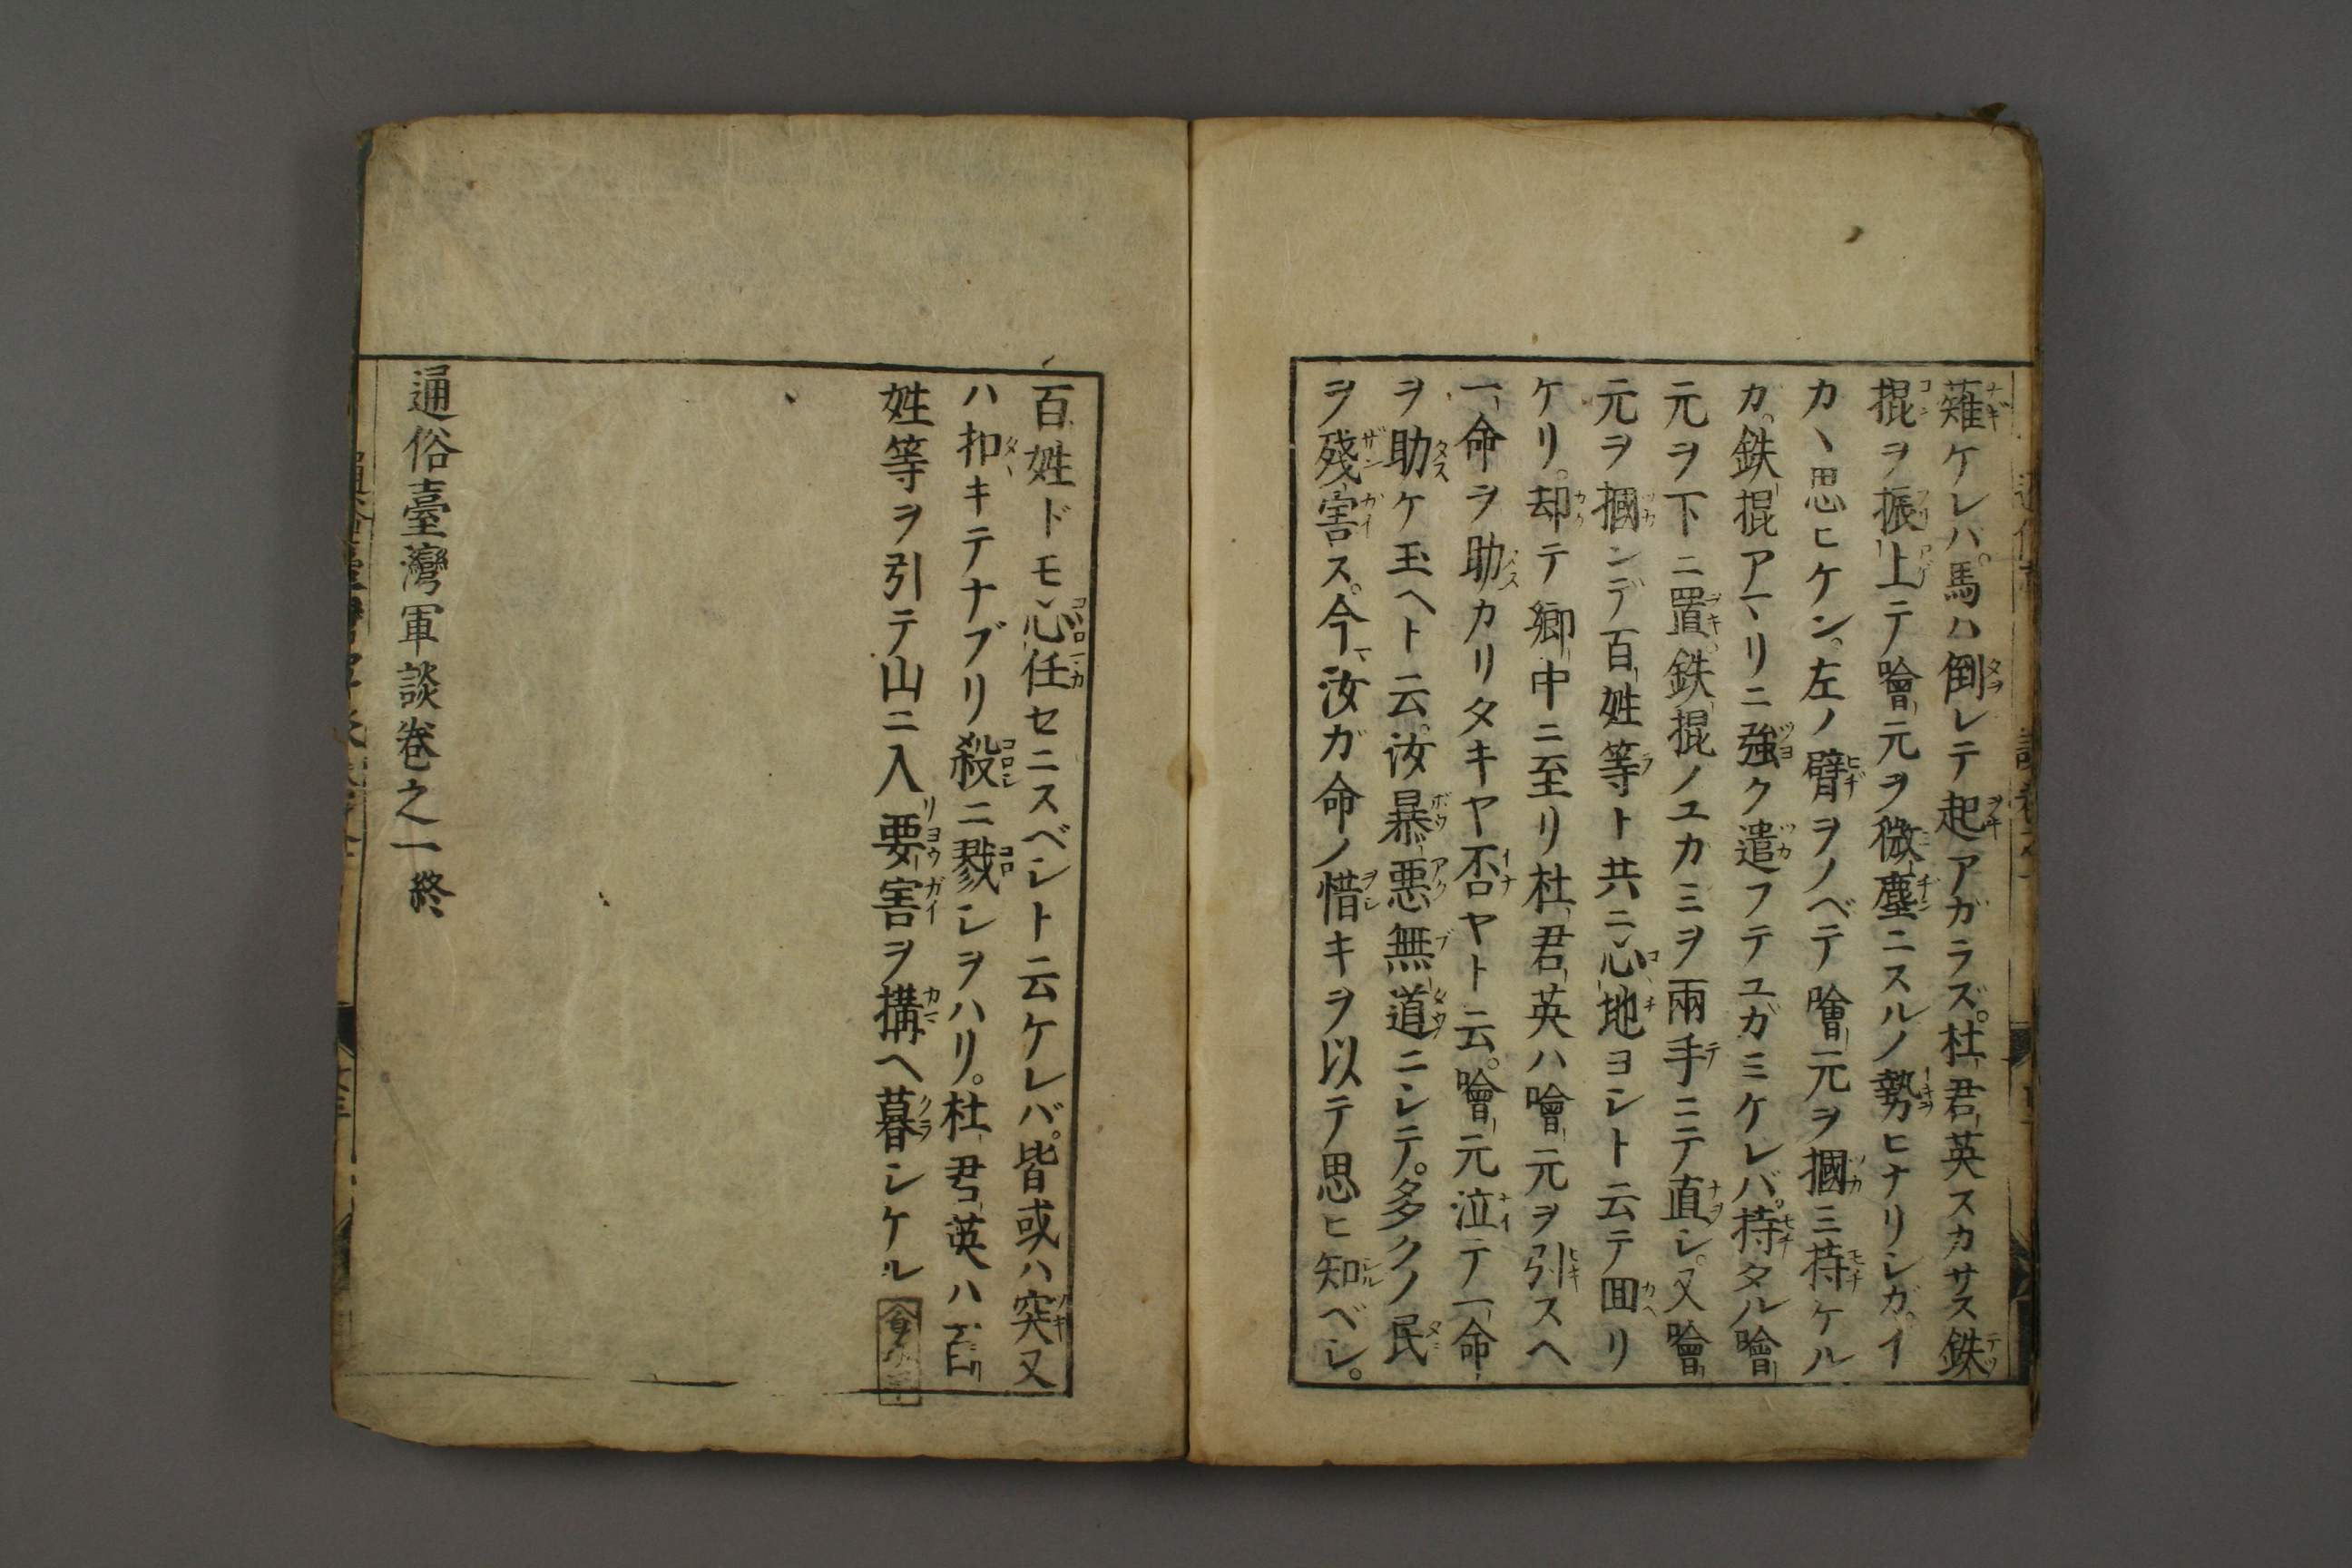 薙ケレバ。馬ハ倒レテ起アガラズ。杜君英スカサス鉄
掍ヲ振上テ噲元ヲ微塵ニスルノ勢ヒナリシガ。イ
カヽ思ヒケン。左ノ臂ヲノベテ噲元ヲ摑ミ持ケル
カ。鉄掍アマリニ強ク遣フテユガミケレバ。持タル噲
元ヲ下ニ置。鉄掍ノユカミヲ兩手ニテ直シ。又噲
元ヲ摑ンデ百姓等ト共ニ心地ヨシト云テ囬リ
ケリ。却テ郷中ニ至リ杜君英ハ噲元ヲ引スヘ
一命ヲ助カリタキヤ否ヤト云。噲元泣テ一命
ヲ助ケ玉ヘト云。汝暴悪無道ニシテ。多クノ民
ヲ殘害ス。今汝ガ命ノ惜キヲ以テ思ヒ知ベシ。
百姓ドモ心任セニスベシト云ケレバ。皆或ハ突又
ハ扣キテナブリ殺ニ戮シヲハリ。杜君英ハ百
姓等ヲ引テ山ニ入要害ヲ構ヘ暮シケル
通俗臺灣軍談卷之一終